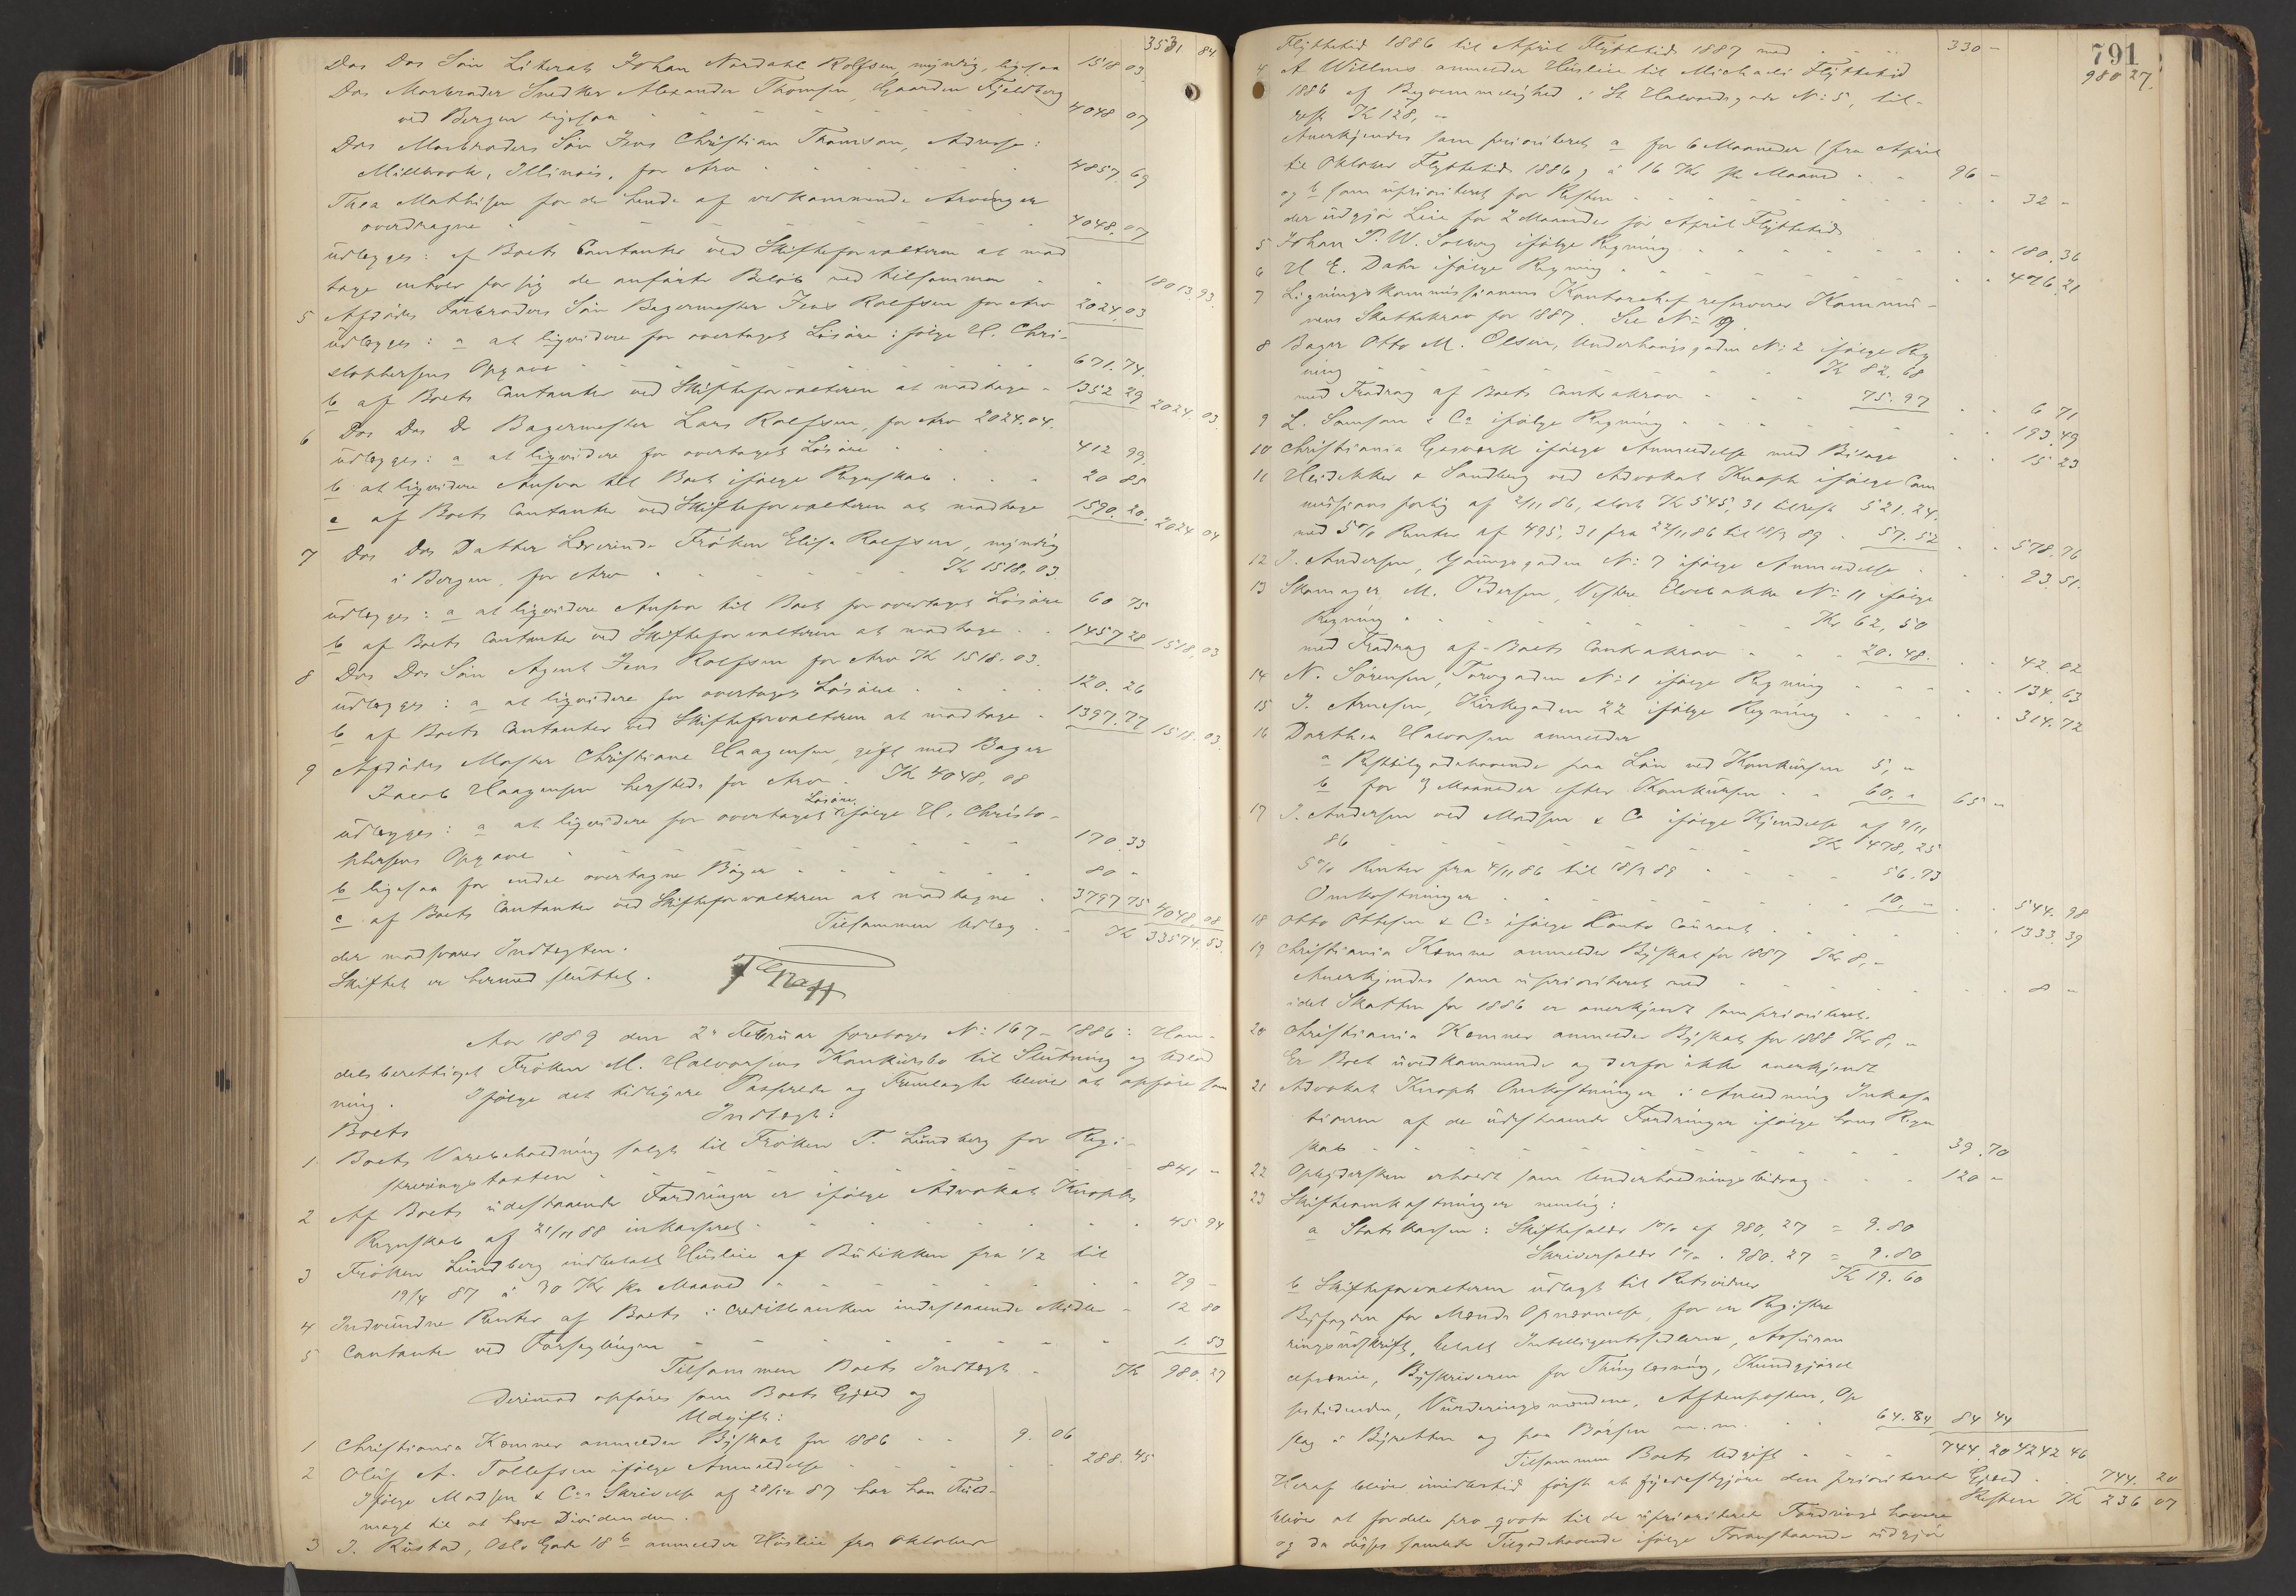 3531 84.
Das Das Søn Literat Johan Nordahl Rolfsen myndig, ligesaa 1518 03.
Das Morbroder Snedker Alexander Thomsen, Gaarden Fjeldberg
ved Bergen ligesaa 4048 07
Das Morbroders Søn Jens Christian Thomson, Adresse:
Millbrook, Illinois, for Arv 4857. 69
Thea Mathisen for de hende af vedkommende Arvinger
overdragne 4048. 07
udlægges: af Boets Contanter ved Skifteforvalteren at mod
tage enhver for sig de anførte Beløb med tilsammen 18013. 93.
5 Afdødes Farbroders Søn Bagermester Jens Rolfsen for Arv 2024. 03
udlægges: a at liqvidere for overtaget Løsøre ifølge H. Chri-
stophersens Opgave 671. 74.
b af Boets Contanter ved Skifteforvalteren at modtage 1352 29 2024. 03.
6 Das Das Do Bagermester Lars Rolfsen, for Arv 2024. 04.
udlægges: a at liqvidere for overtaget Løsøre 412 99.
b at liqvidere Ansvar til Boet ifølge Regnskab 20 85
c af Boets Contanter ved Skifteforvalteren at modtage 1590. 20. 2024 04
7 Das Das Datter Lærerinde Frøken Elisa Rolfsen, myndig
i Bergen, for Arv Kr 1518. 03.
udlægges: a at liqvidere Ansvar til Boet for overtaget Løsøre 60 75
b af Boets Contanter ved Skifteforvalteren at modtage 1457 28 1518. 03
8 Das Das Søn Agent Jens Rolfsen for Arv Kr 1518. 03.
udlægges: a at liqvidere for overtaget Løsøre 120. 26
b af Boets Contanter ved Skifteforvalteren at modtage 1397. 77 1518. 03.
9 Afdødes Moster Christiane Haagensen, gift med Bager
Jacob Haagensen hersteds for Arv Kr 4048, 08
udlægges: a at liqvidere for overtaget Løsøre ifølge H. Christo-
phersens Opgave 170. 33
b ligesaa for endel overtagne Bøger 80 -
c af Boets Contanter ved Skifteforvalteren at modtagne 3797 75 4048. 08
Tilsammen Udlæg Kr 33574. 53.
der modsvarer Indtægten.
Skiftet er hermed sluttet.
Aar 1889 den 2 Februar foretoges No: 167 - 1886: Han-
delsberettiget Frøken M. Halvorsens Konkursbo til Slutning og Udlod
ning. Ifølge det tidligere Passerede og Fremlagte bliver at opføre som
Boets Indtægt:
1 Boets Varebeholdning solgt til Frøken P. Lundberg for Regi-
streringstaxten 841 -
2 Af Boets udestaaende Fordringer er ifølge Advokat Knophs
Regnskab af 21/11 88 inkasseret 45 94
3 Frøken Lundberg indbetalt Husleie af Butikken fra 1/2 til
19/4 87 à 30 Kr pr Maaned 79 -
4 Indvundne Renter af Boets i Creditbanken indestaaende Midler 12 80
5 Contanter ved Forseglingen 1. 53
Tilsammen Boets Indtægt Kr 980. 27
Derimod opføres som Boets Gjæld og
Udgift:
1 Christiania Kemner anmelder Byskat for 1886 9. 06
2 Oluf A. Tollefsen ifølge Anmeldelse 288. 45
Ifølge Madsen & Cos Skrivelse af 28/12 87 har han Fuld-
magt til at hæve Dividenden.
3 J. Rustad, Oslo Gade 18 b anmelder Husleie fra Oktober
791
Flyttetid 1886 til April Flyttetid 1887 med 330 - 980 27.
4 A Willums anmelder Husleie til Michaeli Flyttetid
1886 af Beqvemmelighed i St Halvardsgade No: 5, til-
rest Kr 128, -
Anerkjendes som prioriteret a for 6 Maaneder (fra April
til Oktober Flyttetid 1886) à 16 Kr pr Maaned 96 -
og b som uprioriteret for Resten 32 -
der udgjør Leie for 2 Maaneder før April Flyttetid
5 Johan P. W. Solberg ifølge Regning 180. 36
6 H E. Dahr ifølge Regning 476. 21
7 Ligningskommissionens Kontorchef reserverer Kommu-
nens Skattekrav for 1887. See No 19.
8 Bager Otto M. Olsen, Underhaugsgaden No: 2 ifølge Reg
ning Kr 82. 68
med Fradrag af Boets Contrakrav 75. 97 6 71
9 L. Samson & Co ifølge Regning 193. 49
10 Christiania Gasværk ifølge Anmeldelse med Bilage 15 23
11 Heidekker & Sandberg ved Advokat Knoph ifølge Com
missionsforlig af 2/11 86, stort Kr 545, 31 tilrest 521. 24.
med 5% Renter af 495, 31 fra 22/11 86 til 18/3 89 57. 52 578. 76
12 J. Andersen, Youngsgaden No: 7 ifølge Anmeldelse 23. 51.
13 Skomager M. Pedersen, Vestre Elvebakke No: 11 ifølge
Regning Kr 62, 50
med Fradrag af Boets Contrakrav 20. 48. 42. 02
14 N. Sørensen, Torvgaden No: 1 ifølge Regning 134. 63
15 J. Arnesen, Kirkegaden 22 ifølge Regning 314. 72
16 Dorthea Halvorsen anmelder
a Resttilgodehavende paa Løn ved Konkursen 5, -
b for 3 Maaneder efter Konkursen 60, - 65 -
17 J. Andersen ved Madsen & Co ifølge Kjendelse af 9/11
86 Kr 478, 25
5% Renter fra 4/11 86 til 18/3 89 56. 73
Omkostninger 10, - 544. 98
18 Otto Ottesen & Co ifølge Conto Courant 1333. 39
19 Christiania Kemner anmelder Byskat for 1887 Kr 8, -
Anerkjendes som uprioriteret med 8 -
idet Skatten for 1886 er anerkjendt som prioriteret.
20 Christiania Kemner anmelder Byskat for 1888 Kr 8, -
Er Boet uvedkommende og derfor ikke anerkjendt
21 Advokat Knoph Omkostninger i Anledning Inkassa
tionen af de udestaaende Fordringer ifølge hans Regn
skab 39. 70
22 Opbydersken erholdt som Underholdningsbidrag 120 -
23 Skifteomkostninger nemlig:
a Statskassen: Skiftesalær 1% af 980, 27 = 9. 80
Skriversalær 1% . 980. 27 = 9. 80
Kr 19. 60
b Skifteforvalteren udlagt til Retsvidner
Byfogden for Mænds Opnævnelse, for en Registre
ringsudskrift, betalt Intelligentssedlerne, Assuran
cepræmie, Byskriveren for Thinglæsning, Kundgjørel
sestidenden, Vurderingsmændene, Aftenposten, Op
slag i Byretten og paa Børsen m. m. 64. 84 84 44
Tilsammen Boets Udgift 744. 20 4242 46
Heraf bliver imidlertid først at fyldestgjøre den prioriterede Gjæld 744. 20
Resten Kr 236 07
bliver at fordele pro qvota til de uprioriterede Fordringshavere
og da disses samlede Tilgodehavende ifølge Foranstaaende udgjør